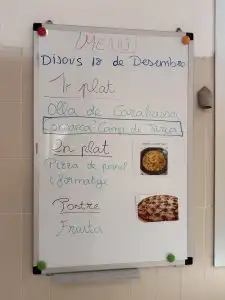 MENÚ
Dijous 18 de Desembre
1r plat
Olla de Carabassa
Comarca: Camp de Túria
2n plat
Pizza de pernil
i formatge
Postre
Fruita